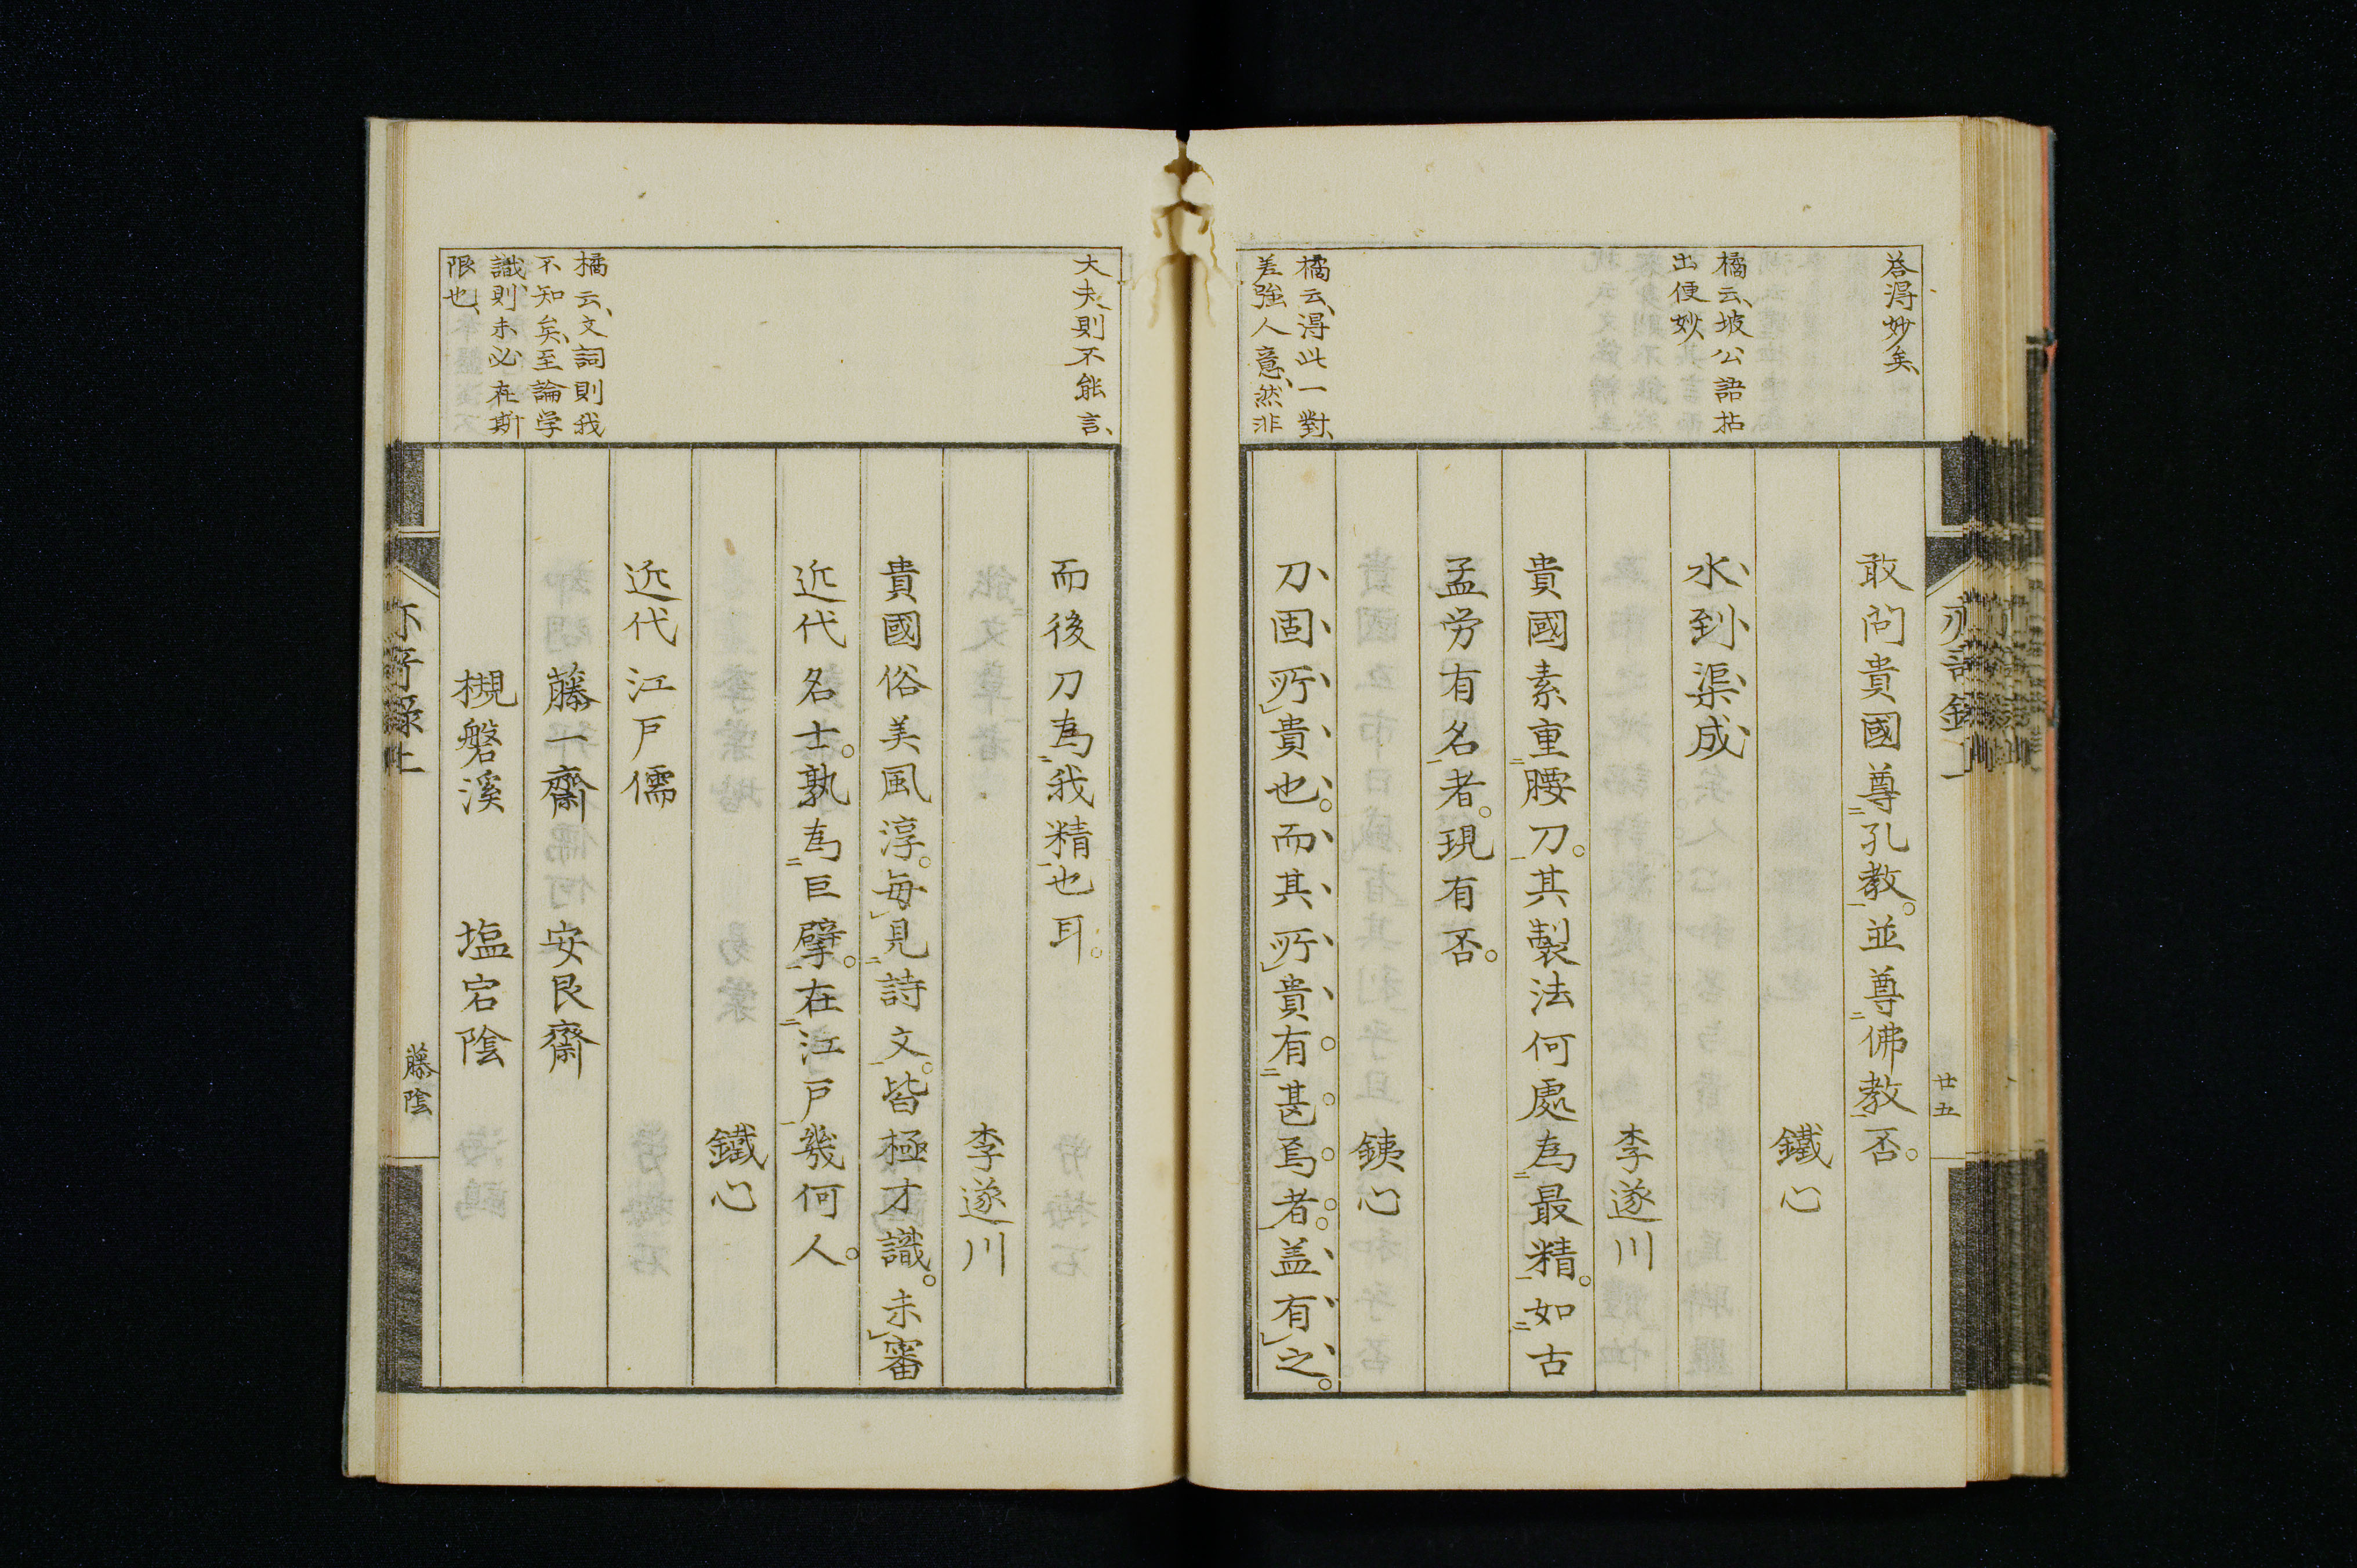 答淂妙矣、
橘云、坡公語拈
出便妙、
橘云、淂此一對、
差強人意、然非
敢问貴國尊孔教。並尊佛教否。
鐵心
水到渠成
李遂川
貴國素重腰刀。其製法何處為最精。如古
孟労有名者。現有否。
銕心
刀固所貴也。而其所貴有甚焉者。盖有之。
廿五
大夫、則不能言、
橘云、文詞則我
不知矣、至論学
識、則未必在斯
限也、
而後刀為我精也耳。
李遂川
貴國俗美風淳。每見詩文。皆極才識。未審
近代名士。孰為巨擘。在江戸幾何人。
鐵心
近代江戸儒
藤一齋　安艮齋
槻磐溪　塩宕陰
藤陰